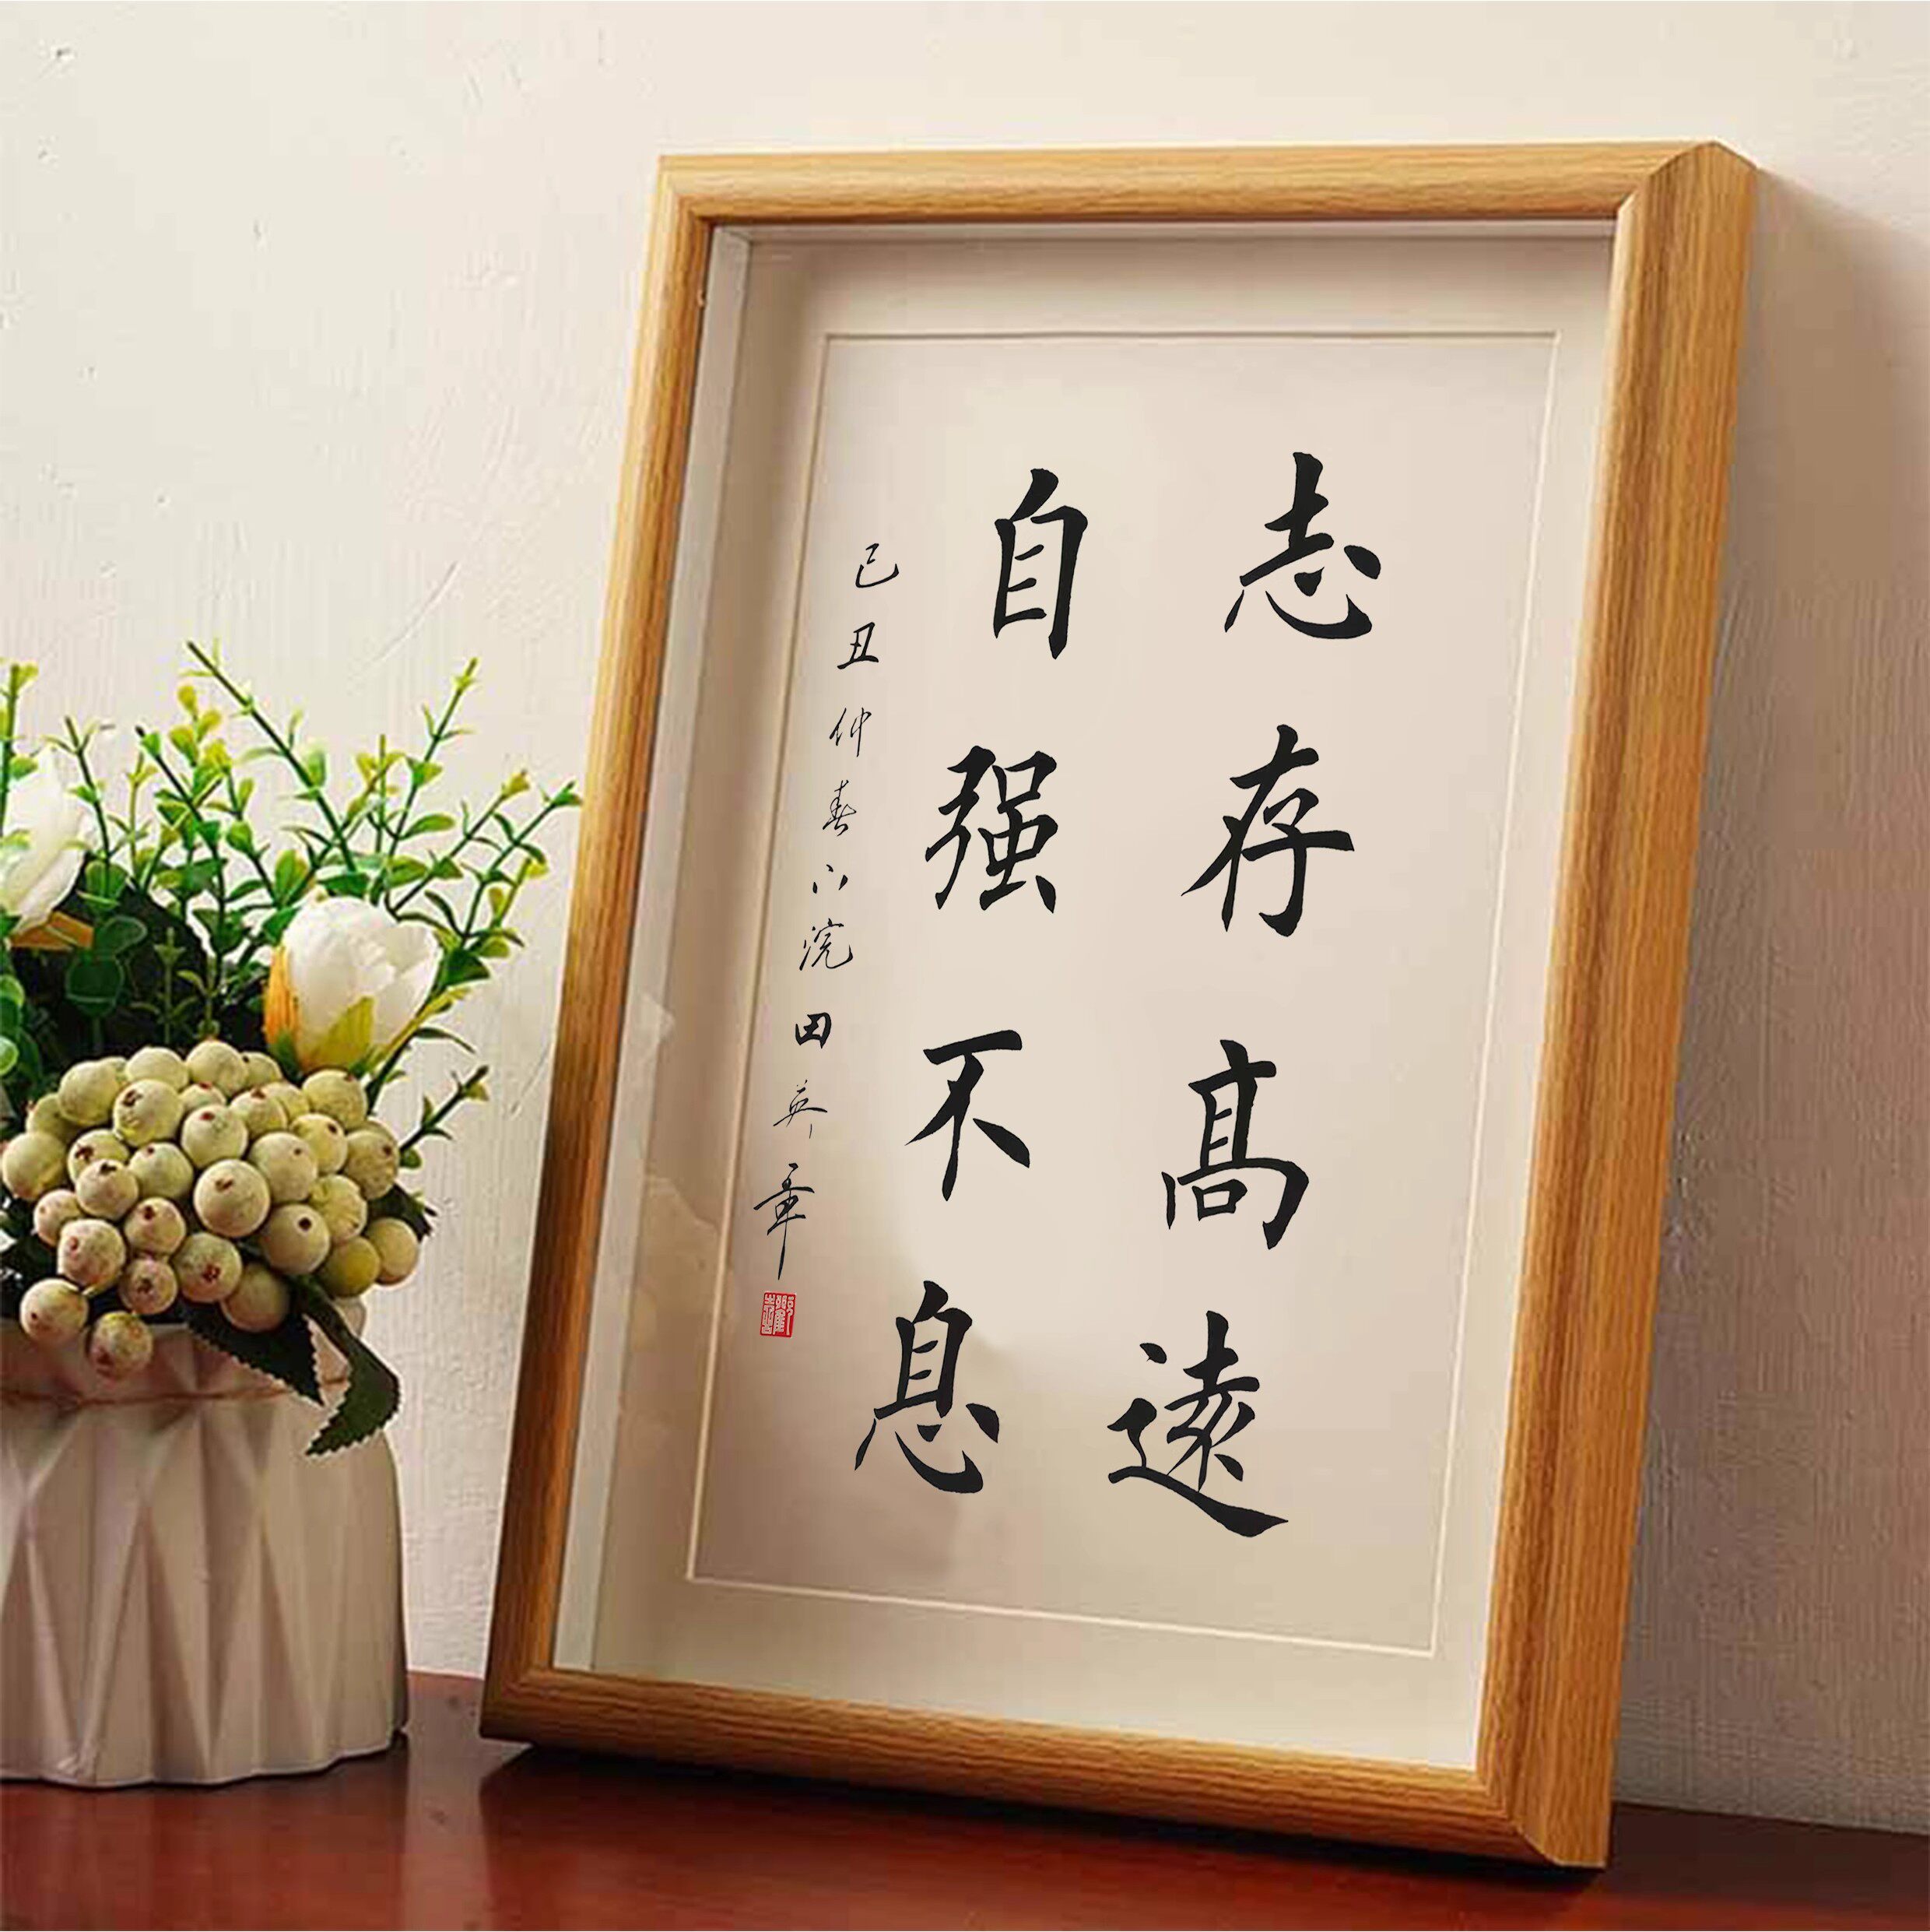 志存高遠
自强不息
己丑仲春八浣田英章